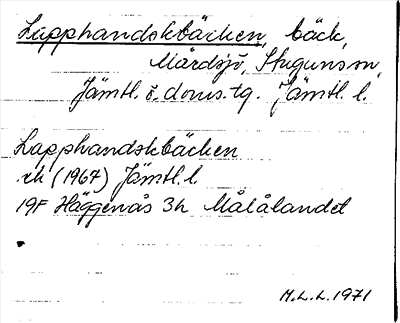 Lapphandskbäcken, bäck,
Mårdsjö, Stuguns sn,
Jämtl. ö. doms. tg. Jämtl. l.
Lapphandskbäcken
ek (1967) Jämtl. l.
19F Häggenås 3h Målålandet
M.L.L. 1971